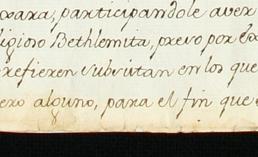 oxaxa, participandole aver
ligioso Bethlemita, prevo por
refieren subsistan en los que
ero alguno, para el fin que